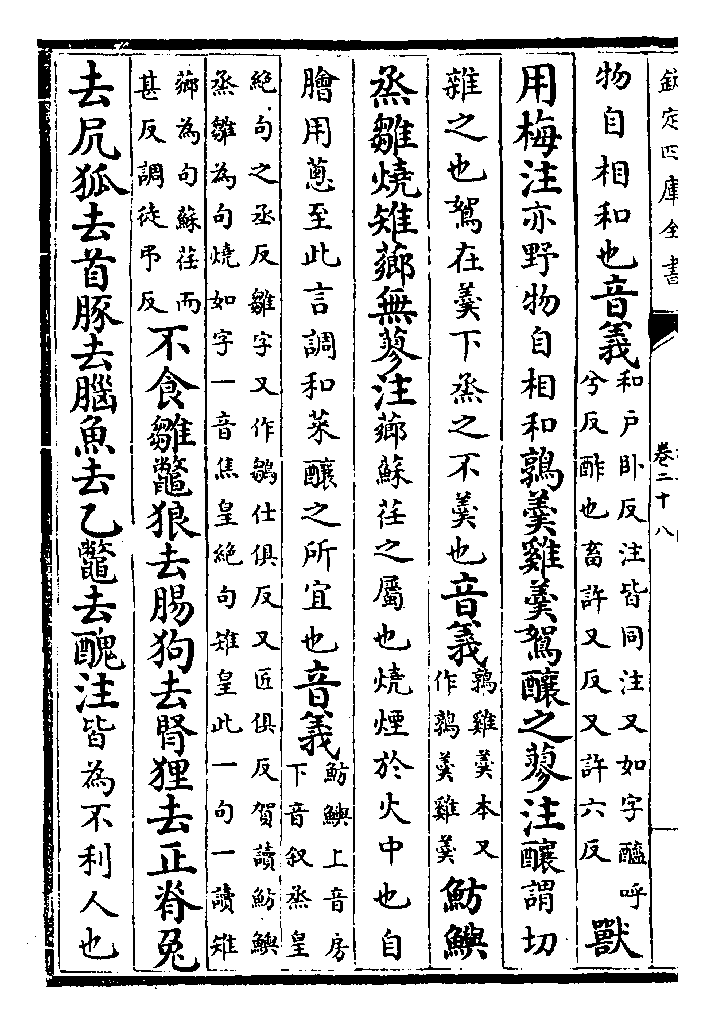 欽定四庫全書
卷二十八
物自相和也音義和户卧反注皆同注又如字醯呼
兮反酢也畜許又反又許六反獸
用梅注亦野物自相和鶉羮雞羮鴽釀之蓼注釀謂切
雜之也鴽在羮下烝之不羮也音義鶉雞羮本又
作鶉羮雞羮魴鱮
烝雛燒雉薌無蓼注薌蘇荏之屬也燒煙於火中也自
膾用蔥至此言調和菜釀之所宜也音義魴鱮上音房
下音叙烝皇
絶句之丞反雛字又作鶵仕俱反又匠俱反賀讀魴鱮
烝雛為句燒如字一音焦皇絶句雉皇此一句一讀雉
薌為句蘇荏而
甚反調徒弔反不食雛鼈狼去腸狗去腎狸去正脊兔
去尻狐去首豚去腦魚去乙鼈去醜注皆為不利人也